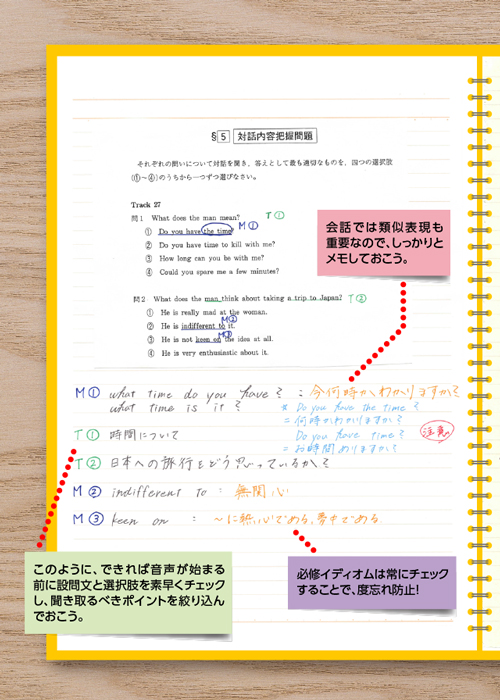 §5 対話内容把握問題
それぞれの問いについて対話を聞き、答えとして最も適切なものを、四つの選択肢
(①~④)のうちから一つずつ選びなさい。
Track 27
問1 What does the man mean? T①
① Do you have the time? M①
② Do you have time to kill with me?
③ How long can you be with me?
④ Could you spare me a few minutes?
会話では類似表現も
重要なので、しっかりと
メモしておこう。
問2 What does the man think about taking a trip to Japan? T②
① He is really mad at the woman.
② He is indifferent to it. M②
③ He is not keen on the idea at all. M③
④ He is very enthusiastic about it.
M① what time do you have? : 今何時かわかりますか?
what time is it?
* Do you have the time?
= 何時かわかりますか?
Do you have time?
= お時間ありますか?
注意
T① 時間について
T② 日本への旅行をどう思っているか?
M② indifferent to : 無関心
M③ keen on : ~に熱心である、夢中である
このように、できれば音声が始まる
前に設問文と選択肢を素早くチェック
し、聞き取るべきポイントを絞り込ん
でおこう。
必修イディオムは常にチェック
することで、度忘れ防止!